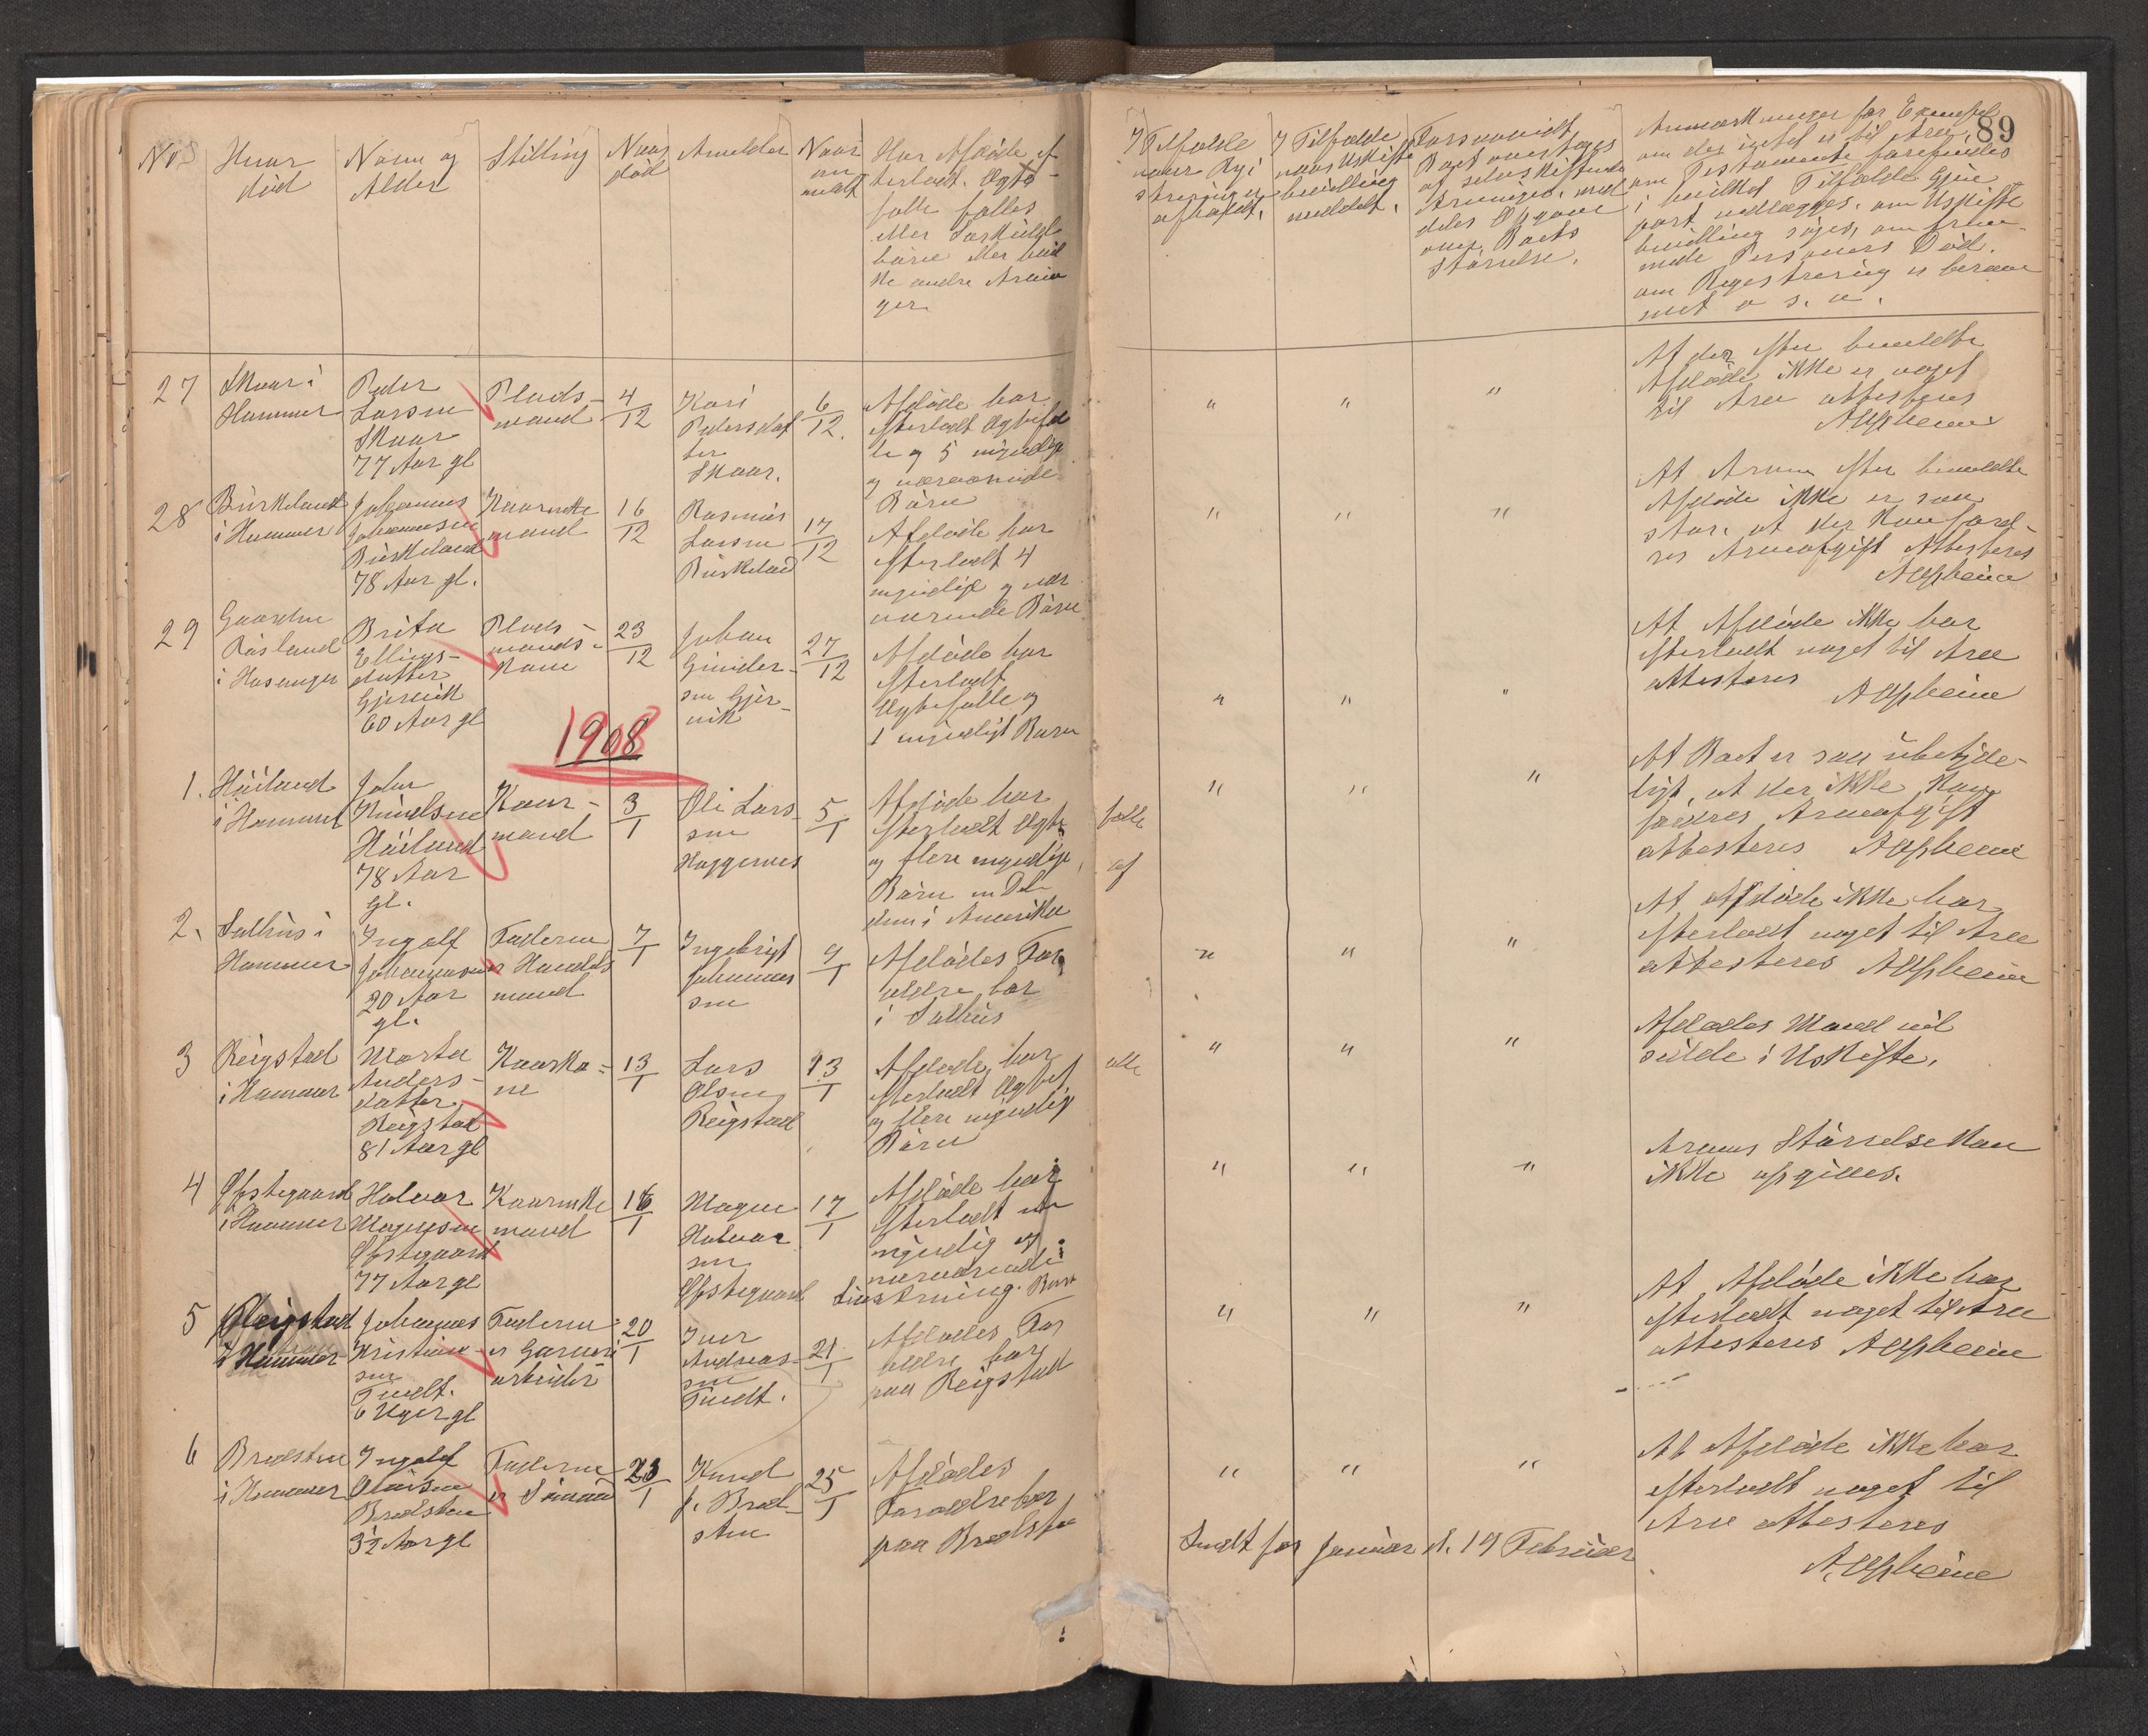 89
No
Hvor
död
Navn og
Alder
Stilling
Naar
död
Anmelder
Naar
an
meldt
Har Afdöde ef
terladt Ægte
fælle fælles
eller Særkuld
börn eller hvil
ke andre Arvin
ger
I Tilfælde
naar Regi
strering er
afholdt.
I Tilfælde
naar Uskifte
bevilling
meddelt.
Forsaavidt
Boet overtages
af selvskiftende
Arvinger, med
deles Opgave
over Boets
Störrelse.
Anmærkninger for Exempel
om der intet er til Arv,
om Testamente forefindes
i hvilket Tilfælde Gjen
part vedlægges, om Uskifte
bevilling söges, om frem
mede Personers Död,
om Registrering er beram
met o s. v.
27
Skaar i
Hammer
Peder
Larsen
Skaar
77 Aar gl
Plads-
mand
4/12
Kari
Pedersdat
ter
Skaar.
6/12.
Afdöde har
efterladt Ægtefæl
le og 5 myndige
og nærværende
Börn
" " "
At der efter bemeldte
Afdöde ikke er noget
til Arv attesteres
28
Birkeland
i Hammer
Johannes
Johannesen
Birkeland
78 Aar gl.
Kaarmke
mand
16/12
Rasmus
Larsen
Birkeland
17/12
Afdöde har
efterladt 4
myndige og nær
værende Börn
" " "
At Arven efter bemeldte
Afdöde ikke er saa
stor, at der kan ford-
res Arveafgift attesteres
29
Gaarden
Rösland
i Hosanger
Brita
Ellings-
datter
Gjervik
60 Aar gl
Plads-
mands-
kone
23/12
Johan
Gunder-
sen Gjer-
vik
27/12
Afdöde har
efterladt
Ægtefælle og
1 myndigt Barn
" " "
At Afdöde ikke har
efterladt noget til Arv
attesteres
1908
1.
Höiland
i Hammer
John
Knudsen
Höiland
78 Aar
gl.
Kaar-
mand
3/1
Ole Lars-
sen
Haggernes
5/1
Afdöde har
efterladt Ægte fælle
og flere myndige,
Börn en Del af
dem i Amerika
" " "
At Boet er saa ubetyde-
ligt, at der ikke kan
fordres Arveafgift
attesteres
2.
Salhus i
Hammer
Ingolf
Johannesen
20 Aar
gl.
Faderen
er Handels
mand
7/1
Ingebrigt
Johannes
sen
9/1
Afdödes For
ældre bor
i Salhus
" " "
At Afdöde ikke har
efterladt noget til Arv
attesteres
3
Reigstad
i Hammer
Marta
Anders-
datter
Reigstad
81 Aar gl
Kaarko-
ne
13/1
Lars
Olsen
Reigstad
13/1
Afdöde har
efterladt Ægtef ælle
og flere myndige
Börn
" " "
Afdödes Mand vil
sidde i Uskifte.
4
Öfstegaard
i Hammer
Halvar
Magnesen
Öfstegaard
77 Aar gl
Kaarmke
mand
16/1
Magne
Halvar
sen
Öfstegaard
17/1
Afdöde har
efterladt en
myndig og
nærværende
Livsarving. Barn
" " "
Arvens Störrelse kan
ikke opgives.
5
Reigstad
i Hammer
Johannes
Kristian-
sen
Tvedt.
6 Uger gl
Faderen
er Garveri
arbeider
20/1
Iver
Andreas-
sen
Tvedt.
21/1
Afdödes For
ældre bor
paa Reigstad
" " "
At Afdöde ikke har
efterladt noget til Arv
attesteres
6
Bredsten
i Hammer
Ingolf
Olaisen
Bredsten
3½ Aar gl
Faderen
er Sömand
23/1
Knud
J. Bred-
sten
25/1
Afdödes
Forældre bor
paa Bredsten
" " "
At Afdöde ikke har
efterladt noget til
Arv attesteres
Sendt for Januar d. 19 Februar